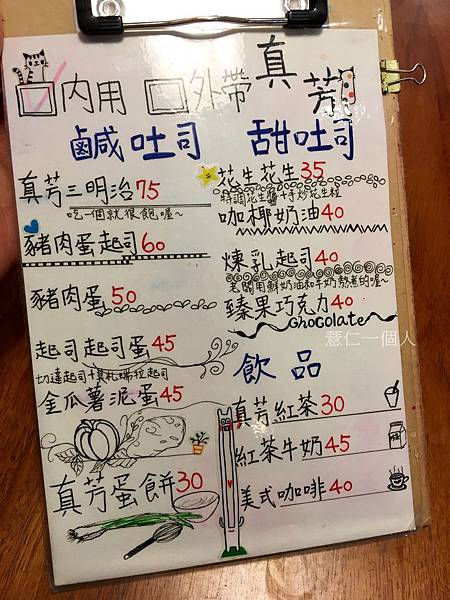 真芳
內用 外帶
鹹吐司
真芳三明治75
吃一個就很飽喔~
豬肉蛋起司60
豬肉蛋50
起司起司蛋45
切達起司+莫札瑞拉起司
金瓜薯泥蛋45
真芳蛋餅30
甜吐司
花生花生35
特調花生醬+手炒花生粒
咖椰奶油40
煉乳起司40
老闆用鮮奶油和牛奶熬煮的喔~
臻果巧克力40
chocolate
飲品
真芳紅茶30
紅茶牛奶45
美式咖啡40
薏仁一個人